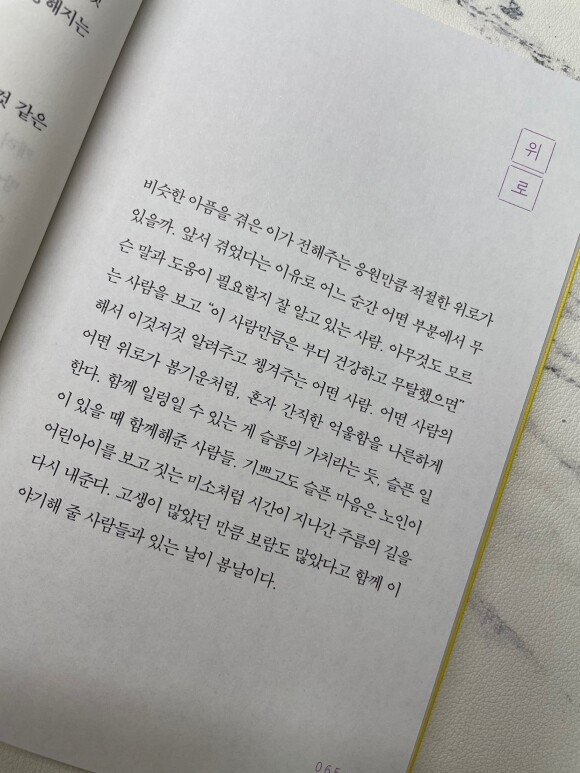 것
해지는
것 같은
위
로
비슷한 아픔을 겪은 이가 전해주는 응원만큼 적절한 위로가
있을까. 앞서 겪었다는 이유로 어느 순간 어떤 부분에서 무
슨 말과 도움이 필요할지 잘 알고 있는 사람. 아무것도 모르
는 사람을 보고 “이 사람만큼은 부디 건강하고 무탈했으면”
해서 이것저것 알려주고 챙겨주는 어떤 사람. 어떤 사람의
어떤 위로가 봄기운처럼, 혼자 간직한 억울함을 나른하게
한다. 함께 일렁일 수 있는 게 슬픔의 가치라는 듯. 슬픈 일
이 있을 때 함께해준 사람들. 기쁘고도 슬픈 마음은 노인이
어린아이를 보고 짓는 미소처럼 시간이 지나간 주름의 길을
다시 내준다. 고생이 많았던 만큼 보람도 많았다고 함께 이
야기해 줄 사람들과 있는 날이 봄날이다.